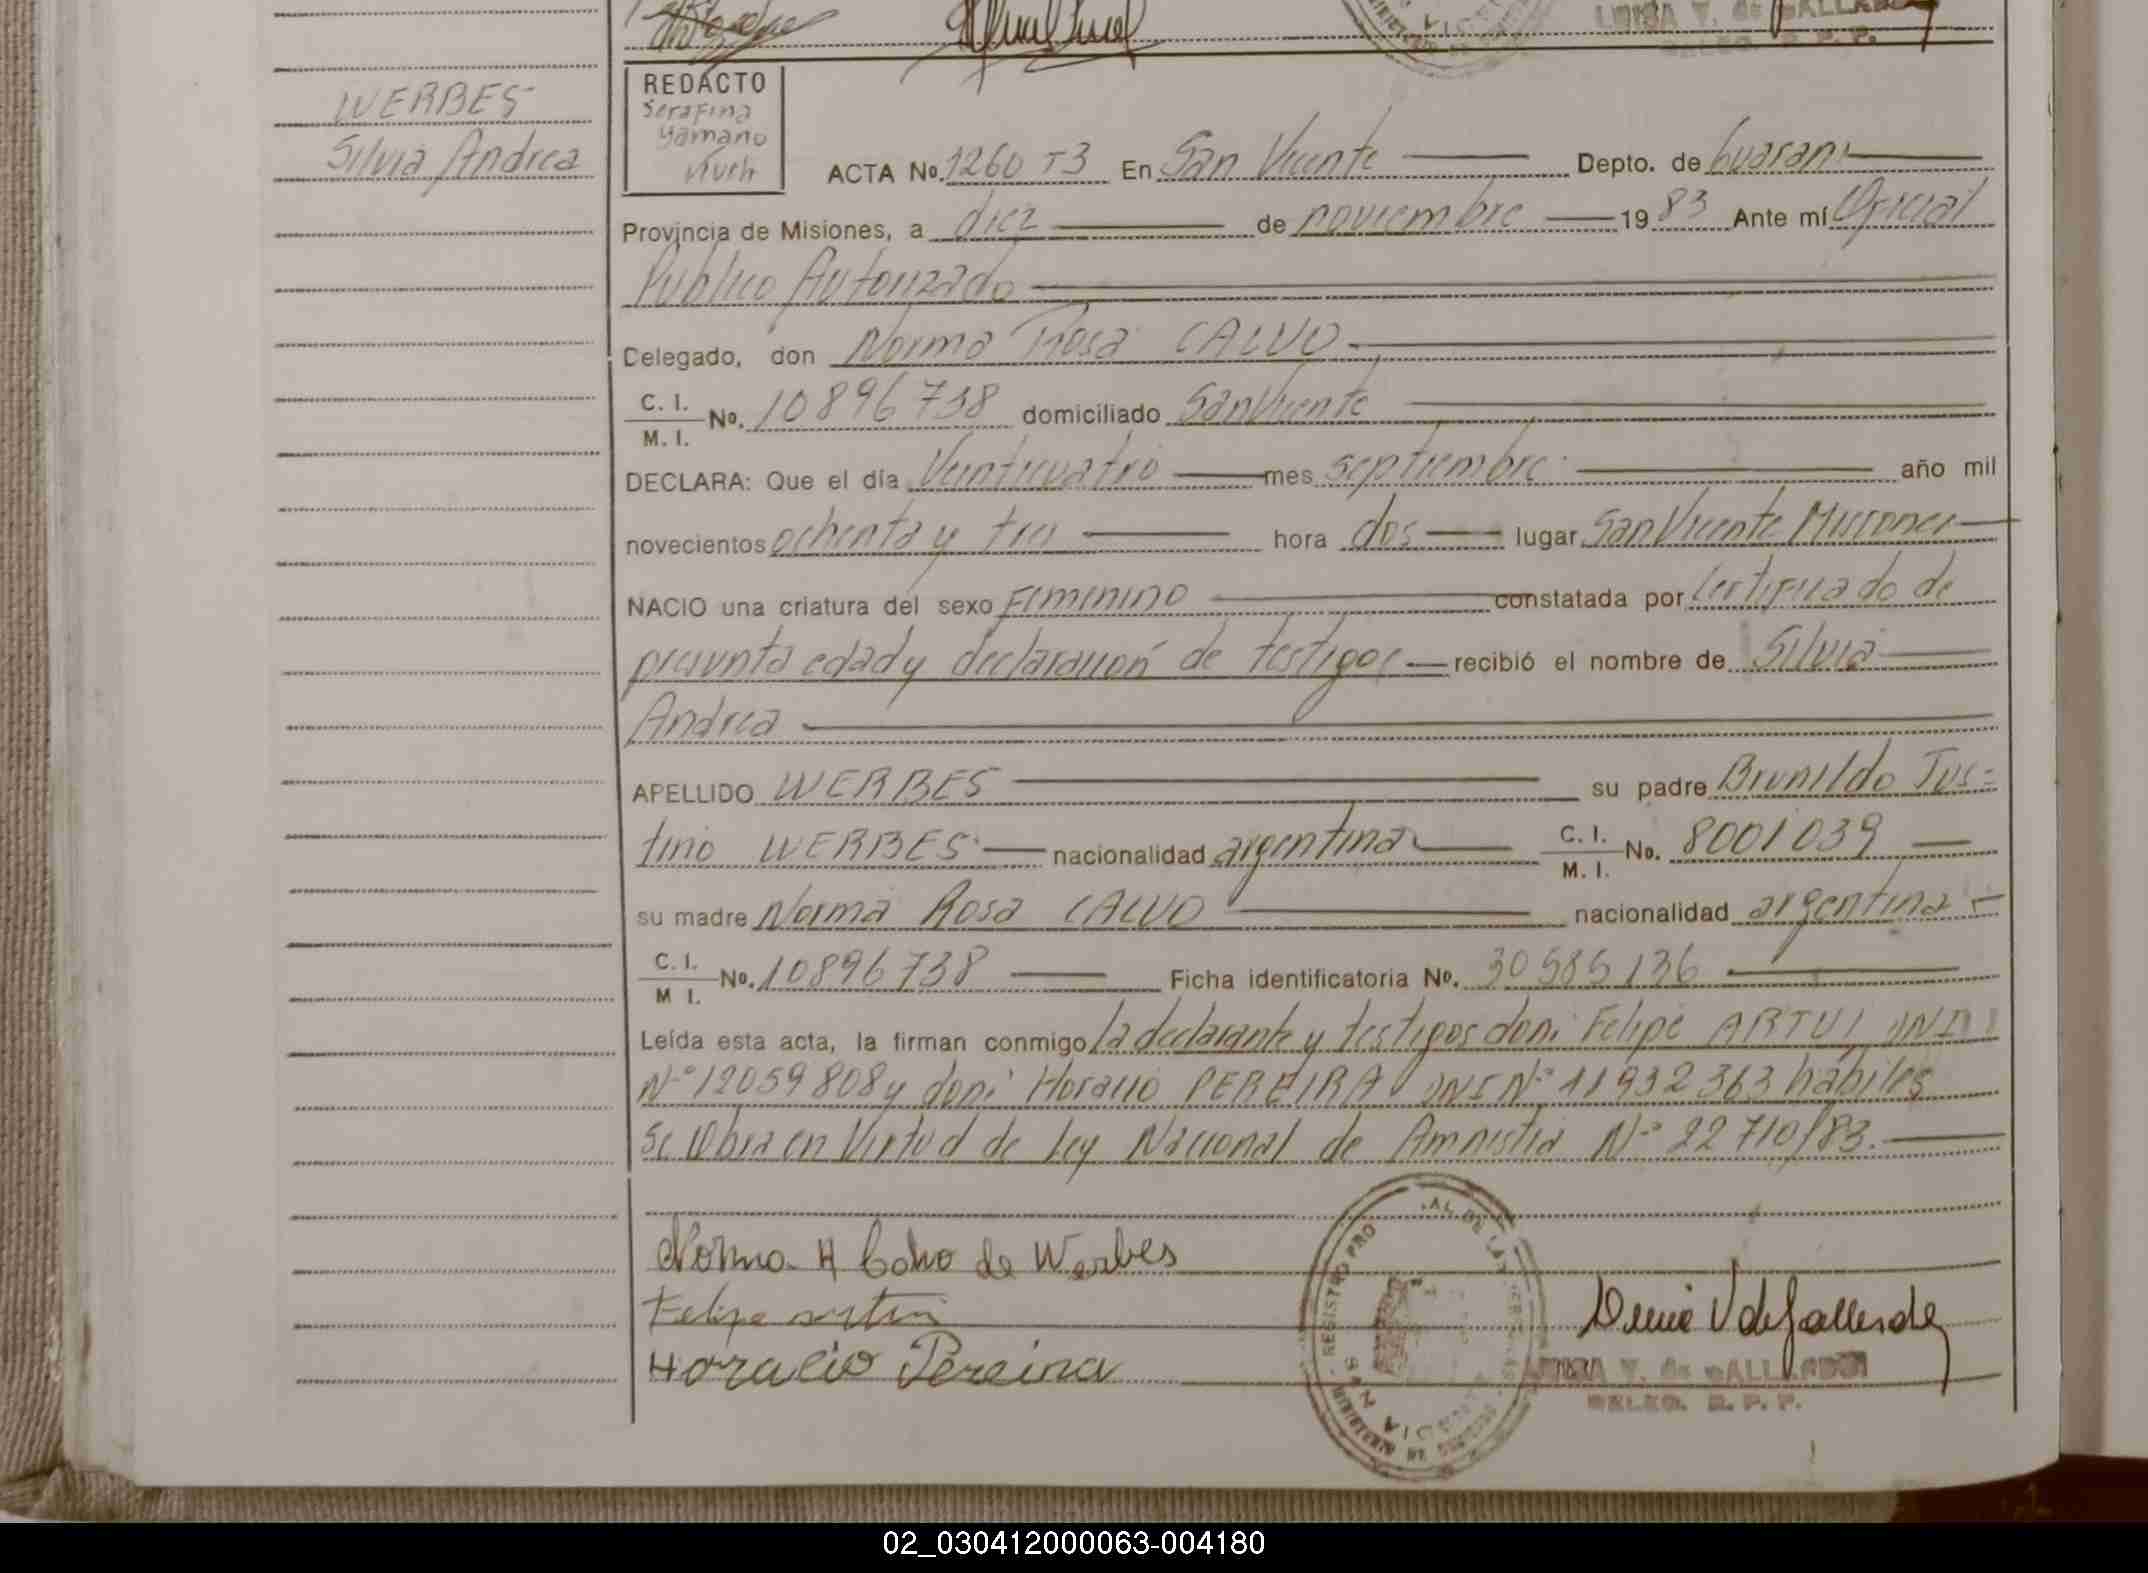 LUISA V. de GALLARDO
DELEG. R. P. P.
WERBES
Silvia Andrea
REDACTO
Serafina
Yamano
Viveh
ACTA No. 1260 T3 En San Vicente Depto. de Guarani
Provincia de Misiones, a diez de noviembre 1983 Ante mí Oficial
Público Autorizado
Delegado, don Norma Rosa CALVO
C. I.
M. I. No. 10896738 domiciliado San Vicente
DECLARA: Que el día Veinticuatro mes septiembre año mil
novecientos ochenta y tres hora dos lugar San Vicente Misiones
NACIO una criatura del sexo Femenino constatada por Certificado de
presunta edad y declaración de testigos recibió el nombre de Silvia
Andrea
APELLIDO WERBES su padre Brunildo Jus=
tino WERBES nacionalidad argentina C. I.
M. I. No. 8001039
su madre Norma Rosa CALVO nacionalidad argentina
C. I.
M I. No. 10896738 Ficha identificatoria No. 30585136
Leída esta acta, la firman conmigo la declarante y testigos don: Felipe ARTUI DNI
Nº 12059808 y don: Horacio PEREIRA DNI Nº 11932363 hábiles
Se labra en Virtud de Ley Nacional de Amnistia Nº 22710/83.
Norma R Calvo de Werbes
Felipe
Horacio Pereira
REGISTRO PRO AL DE LAS
SAN VICENTE
LUISA V. de GALLARDO
DELEG. R. P. P.
02_030412000063-004180